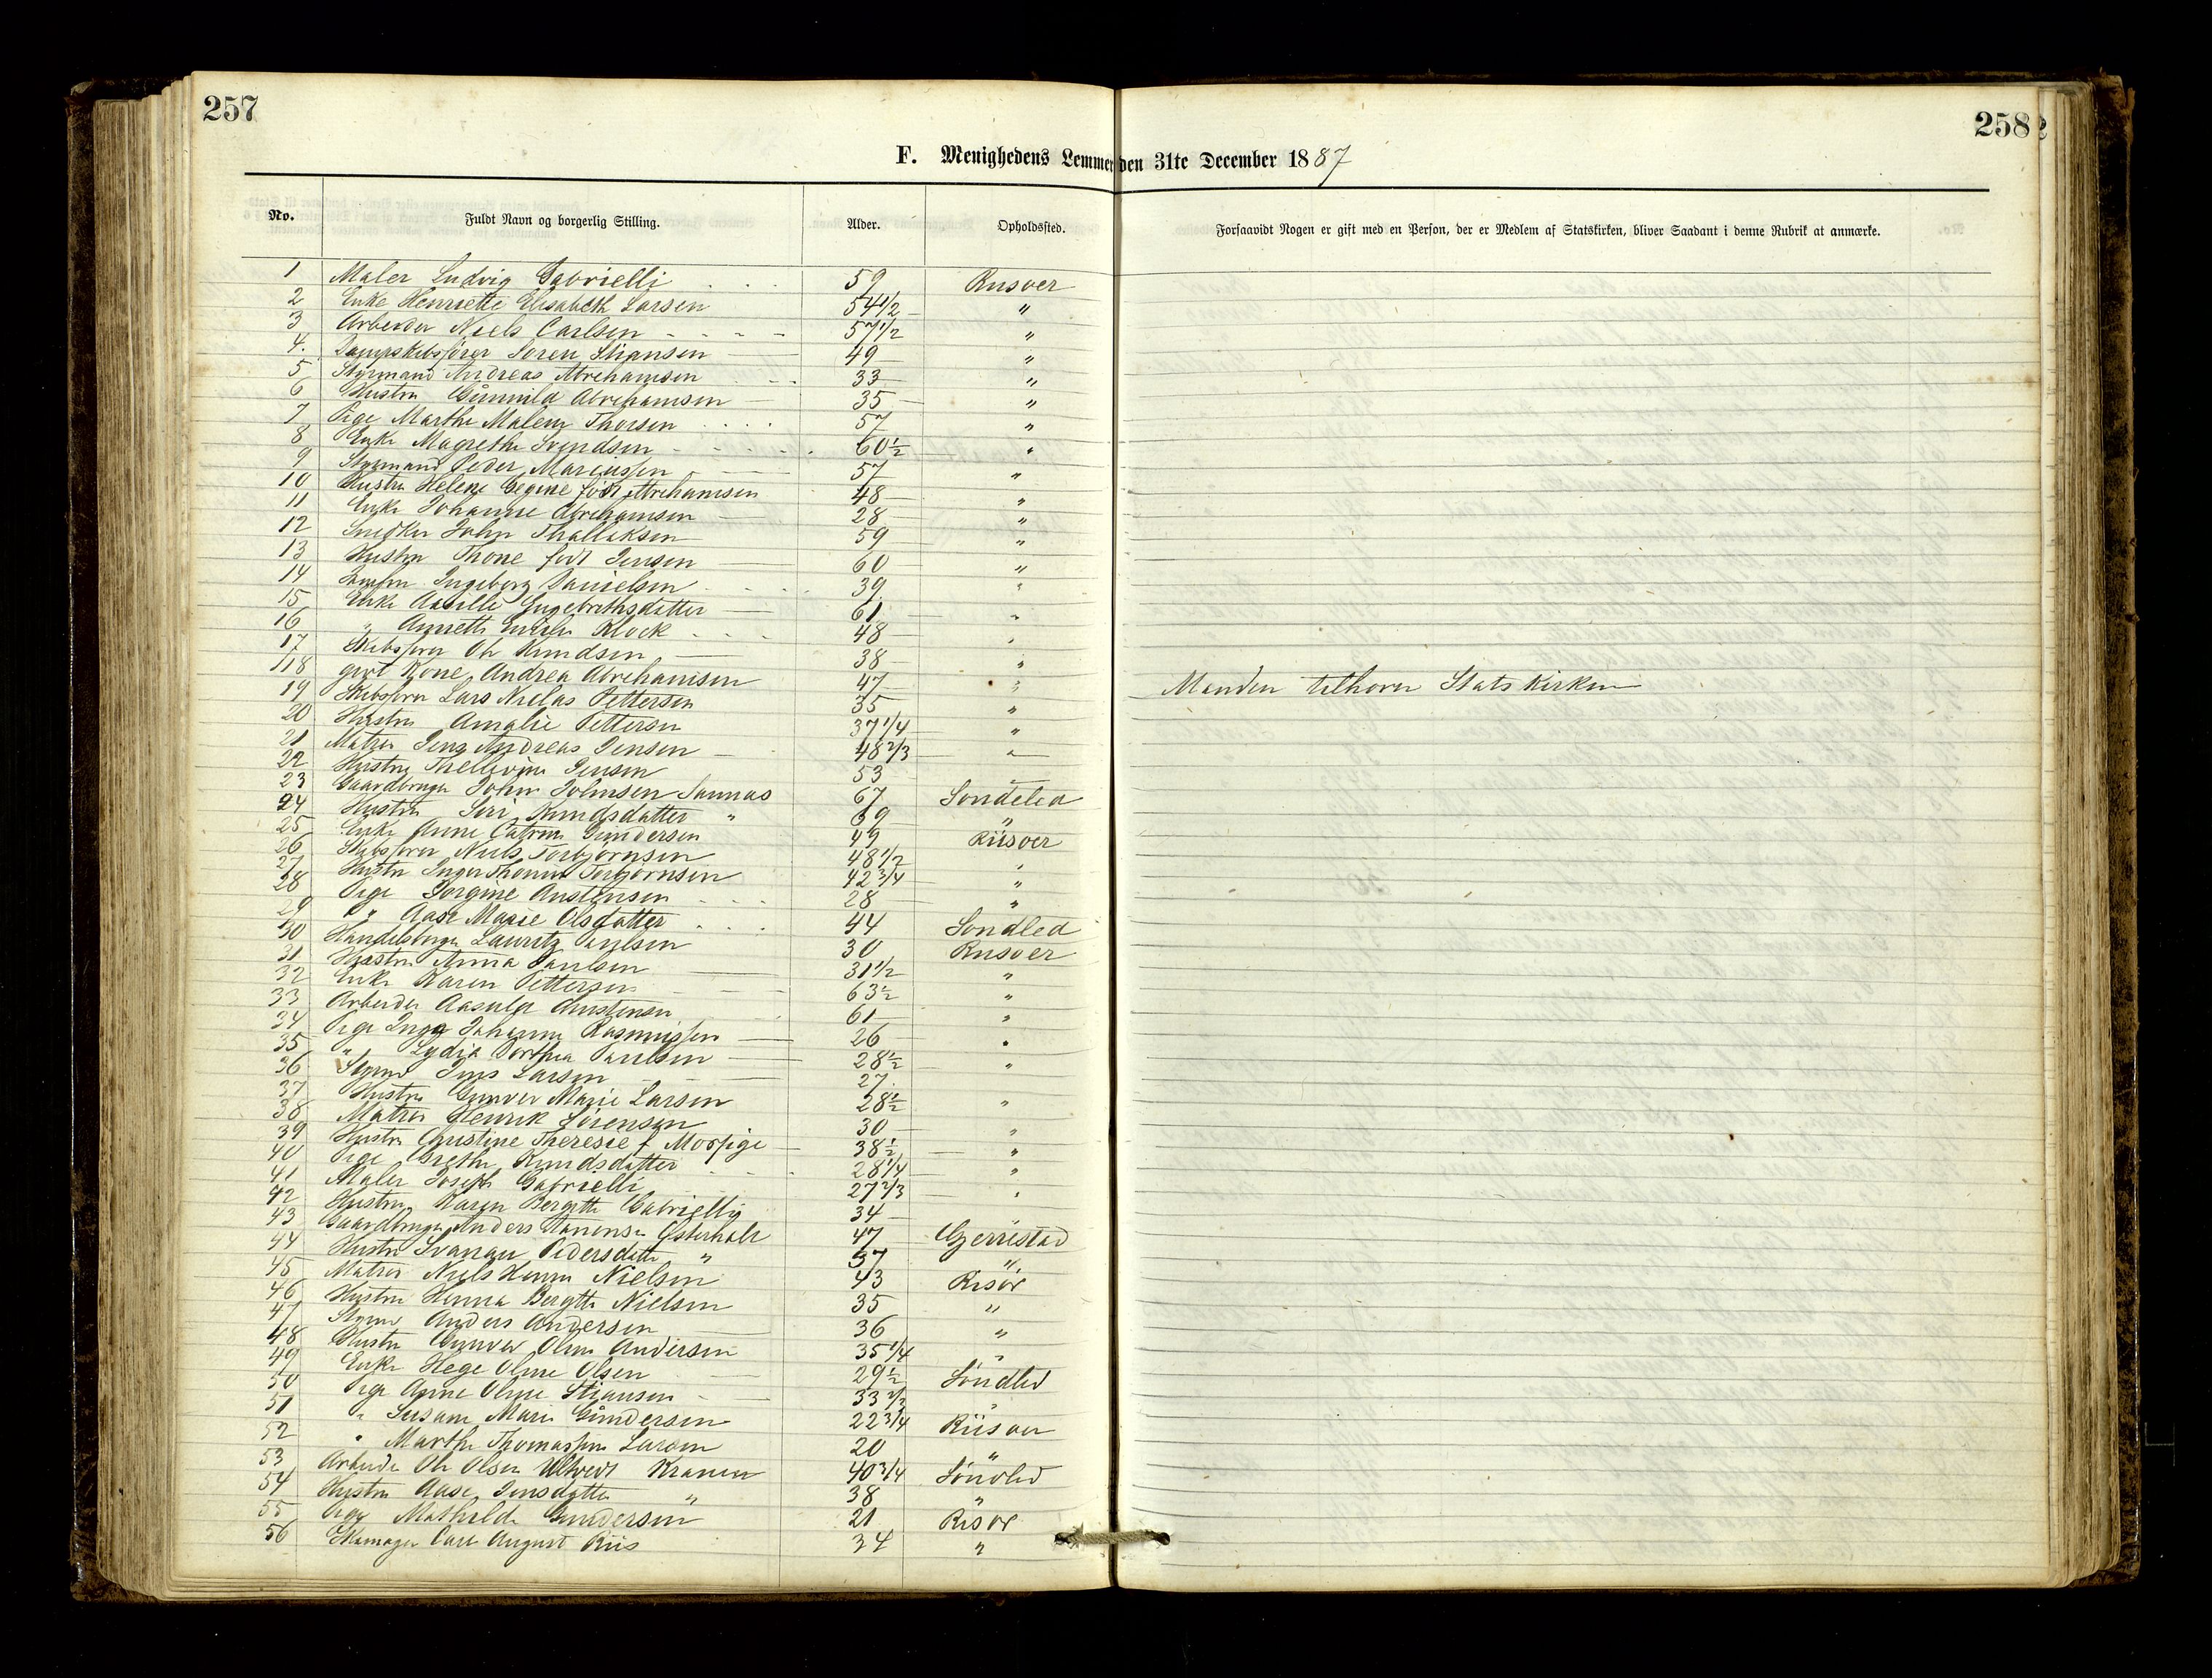 257
258
F. Menighedens Lemmer den 31te December 1887
No. Fuldt Navn og borgerlig Stilling. Alder. Opholdssted. Forsaavidt Nogen er gift med en Person, der er Medlem af Statskirken, bliver Saadant i denne Rubrik at anmærke.
1 Maler Ludvig Gabrielli 59 Riisøer
2 Enke Henriette Elisabeth Larsen 54 1/2 "
3 Arbeider Niels Carlsen 57 1/2 "
4. Dampskibsfører Søren Stiansen 49 "
5 Styrmand Andreas Abrehamsen 33 "
6 Hustru Gunnild Abrehamsen 35 "
7 Pige Marthe Malene Thorsen 57 "
8 Enke Magrethe Svendsen 60 1/2 "
9 Styrmand Peder Marcussen 57 "
10 Hustru Helene Gegine født Abrehamsen 48 "
11 Enke Johanne Abrehamsen 28 "
12 Snedker John Thallaksen 59 "
13 Hustru Thone født Jensen 60 "
14 Ingeborg Danielsen 39 "
15 Enke Aasille Engebrethsdatter 61 "
16 " Annette Klock 48 "
17 Skibsfører Ole Knudsen 38 "
18 givt Kone Andrea Abrehamsen 47 " Manden tilhører Statskirken
19 Skibsfører Lars Niclas Pettersen 35 "
20 Hustru Amalie Pettersen 37 1/4 "
21 Matros Jens Andreas Jensen 48 2/3 "
22 Hustru Jensen 53
23 Gaardbruger John Johnsen Sannæs 67 Søndeled
24 Hustru Siri Knudsdatter " 69 "
25 Enke Anne Catrine Gundersen 49 Riisøer
26 Skibsfører Niels Torbjørnsen 48 1/2 "
27 Hustru Inger Thomine Torbjørnsen 42 3/4 "
28 Pige Jørgine Austensen 28 "
29 " Aase Marie Olsdatter 44 Søndled
30 Handelsborger Lauritz Paulsen 30 Riisøer
31 Hustru Anna Paulsen 31 1/2 "
32 Enke Karen Pettersen 63 1/2 "
33 Arbeider Aasulf 61 "
34 Pige Inga Johanne Rasmussen 26 "
35 " Lydia Dorthea Paulsen 28 1/2 "
36 Styrmd Jens Larsen 27
37 Hustru Gunver Marie Larsen 28 1/2 "
38 Matros Henrik Sørensen 30 "
39 Hustru Christine Theresie f Morfige 38 1/2 "
40 Pige Grethe Knudsdatter 28 1/4 "
41 Maler Joseph Gabrielli 27 2/3 "
42 Hustru Karen Bergitte Gabrielli 34
43 Gaardbruger Anders Østerholt 47 Gjerrestad
44 Hustru Svanau Pedersdatter " 37 "
45 Matros Niels Henrik Nielsen 43 Risør
46 Hustru Hanna Bergitte Nielsen 35 "
47 Styrm Anders Andersen 36 "
48 Hustru Gunver Oline Andersen 35 1/4 "
49 Enke Hege Oline Olsen 29 1/2 Søndled
50 Pige Anne Oline Stiansen 33 2/3 "
51 " Susane Marie Gundersen 22 3/4 Riisøer
52 " Marthe Thomasine Larsen 20 "
53 Arbeider Ole Olsen Ultvedt Kranen 40 3/4 Søndled
54 Hustru Aase Jensdatter " 38 "
55 Pige Mathilde Gundersen 21 Risør
56 Skomager Carl August Riis 34 "